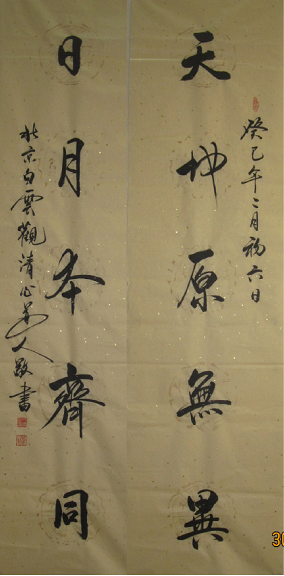 癸巳年二月初六日
天坤原無異
日月本齊同
北京白雲觀清心道人敬書
30